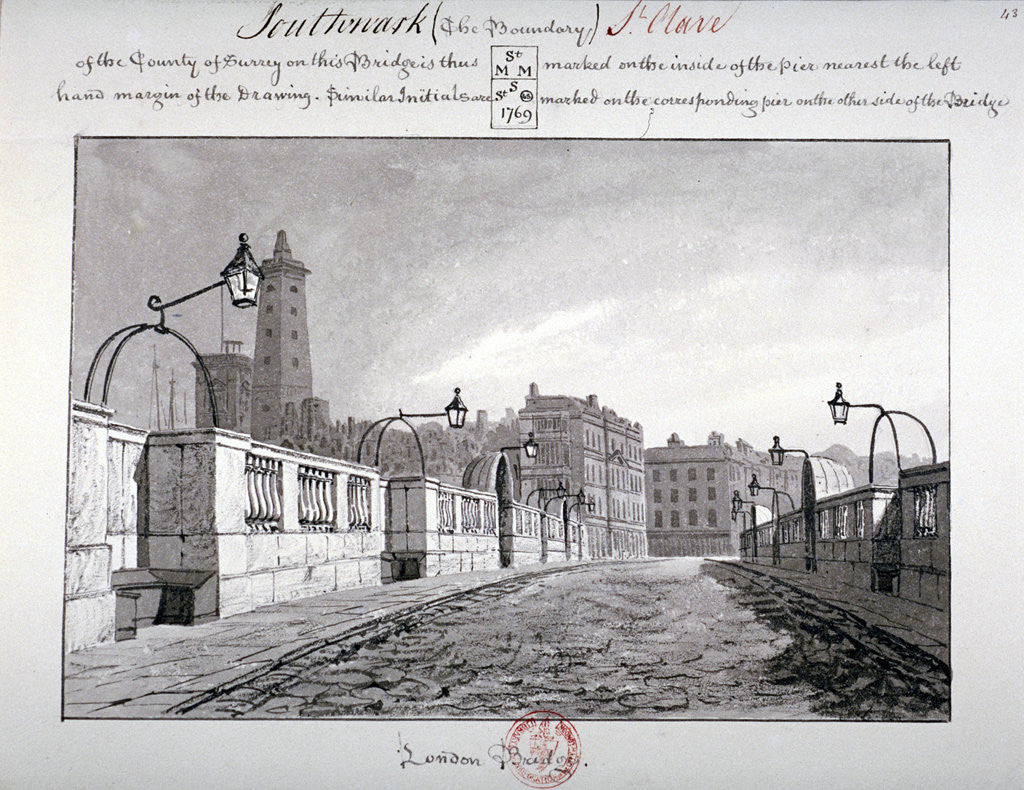 Southwark (The Boundary) St. Olave
43
of the County of Surrey on this Bridge is thus
St
M M
marked on the inside of the pier nearest the left
hand margin of the Drawing. Similar Initials are
St S
1769
marked on the corresponding pier on the other side of the Bridge
London Bridge.